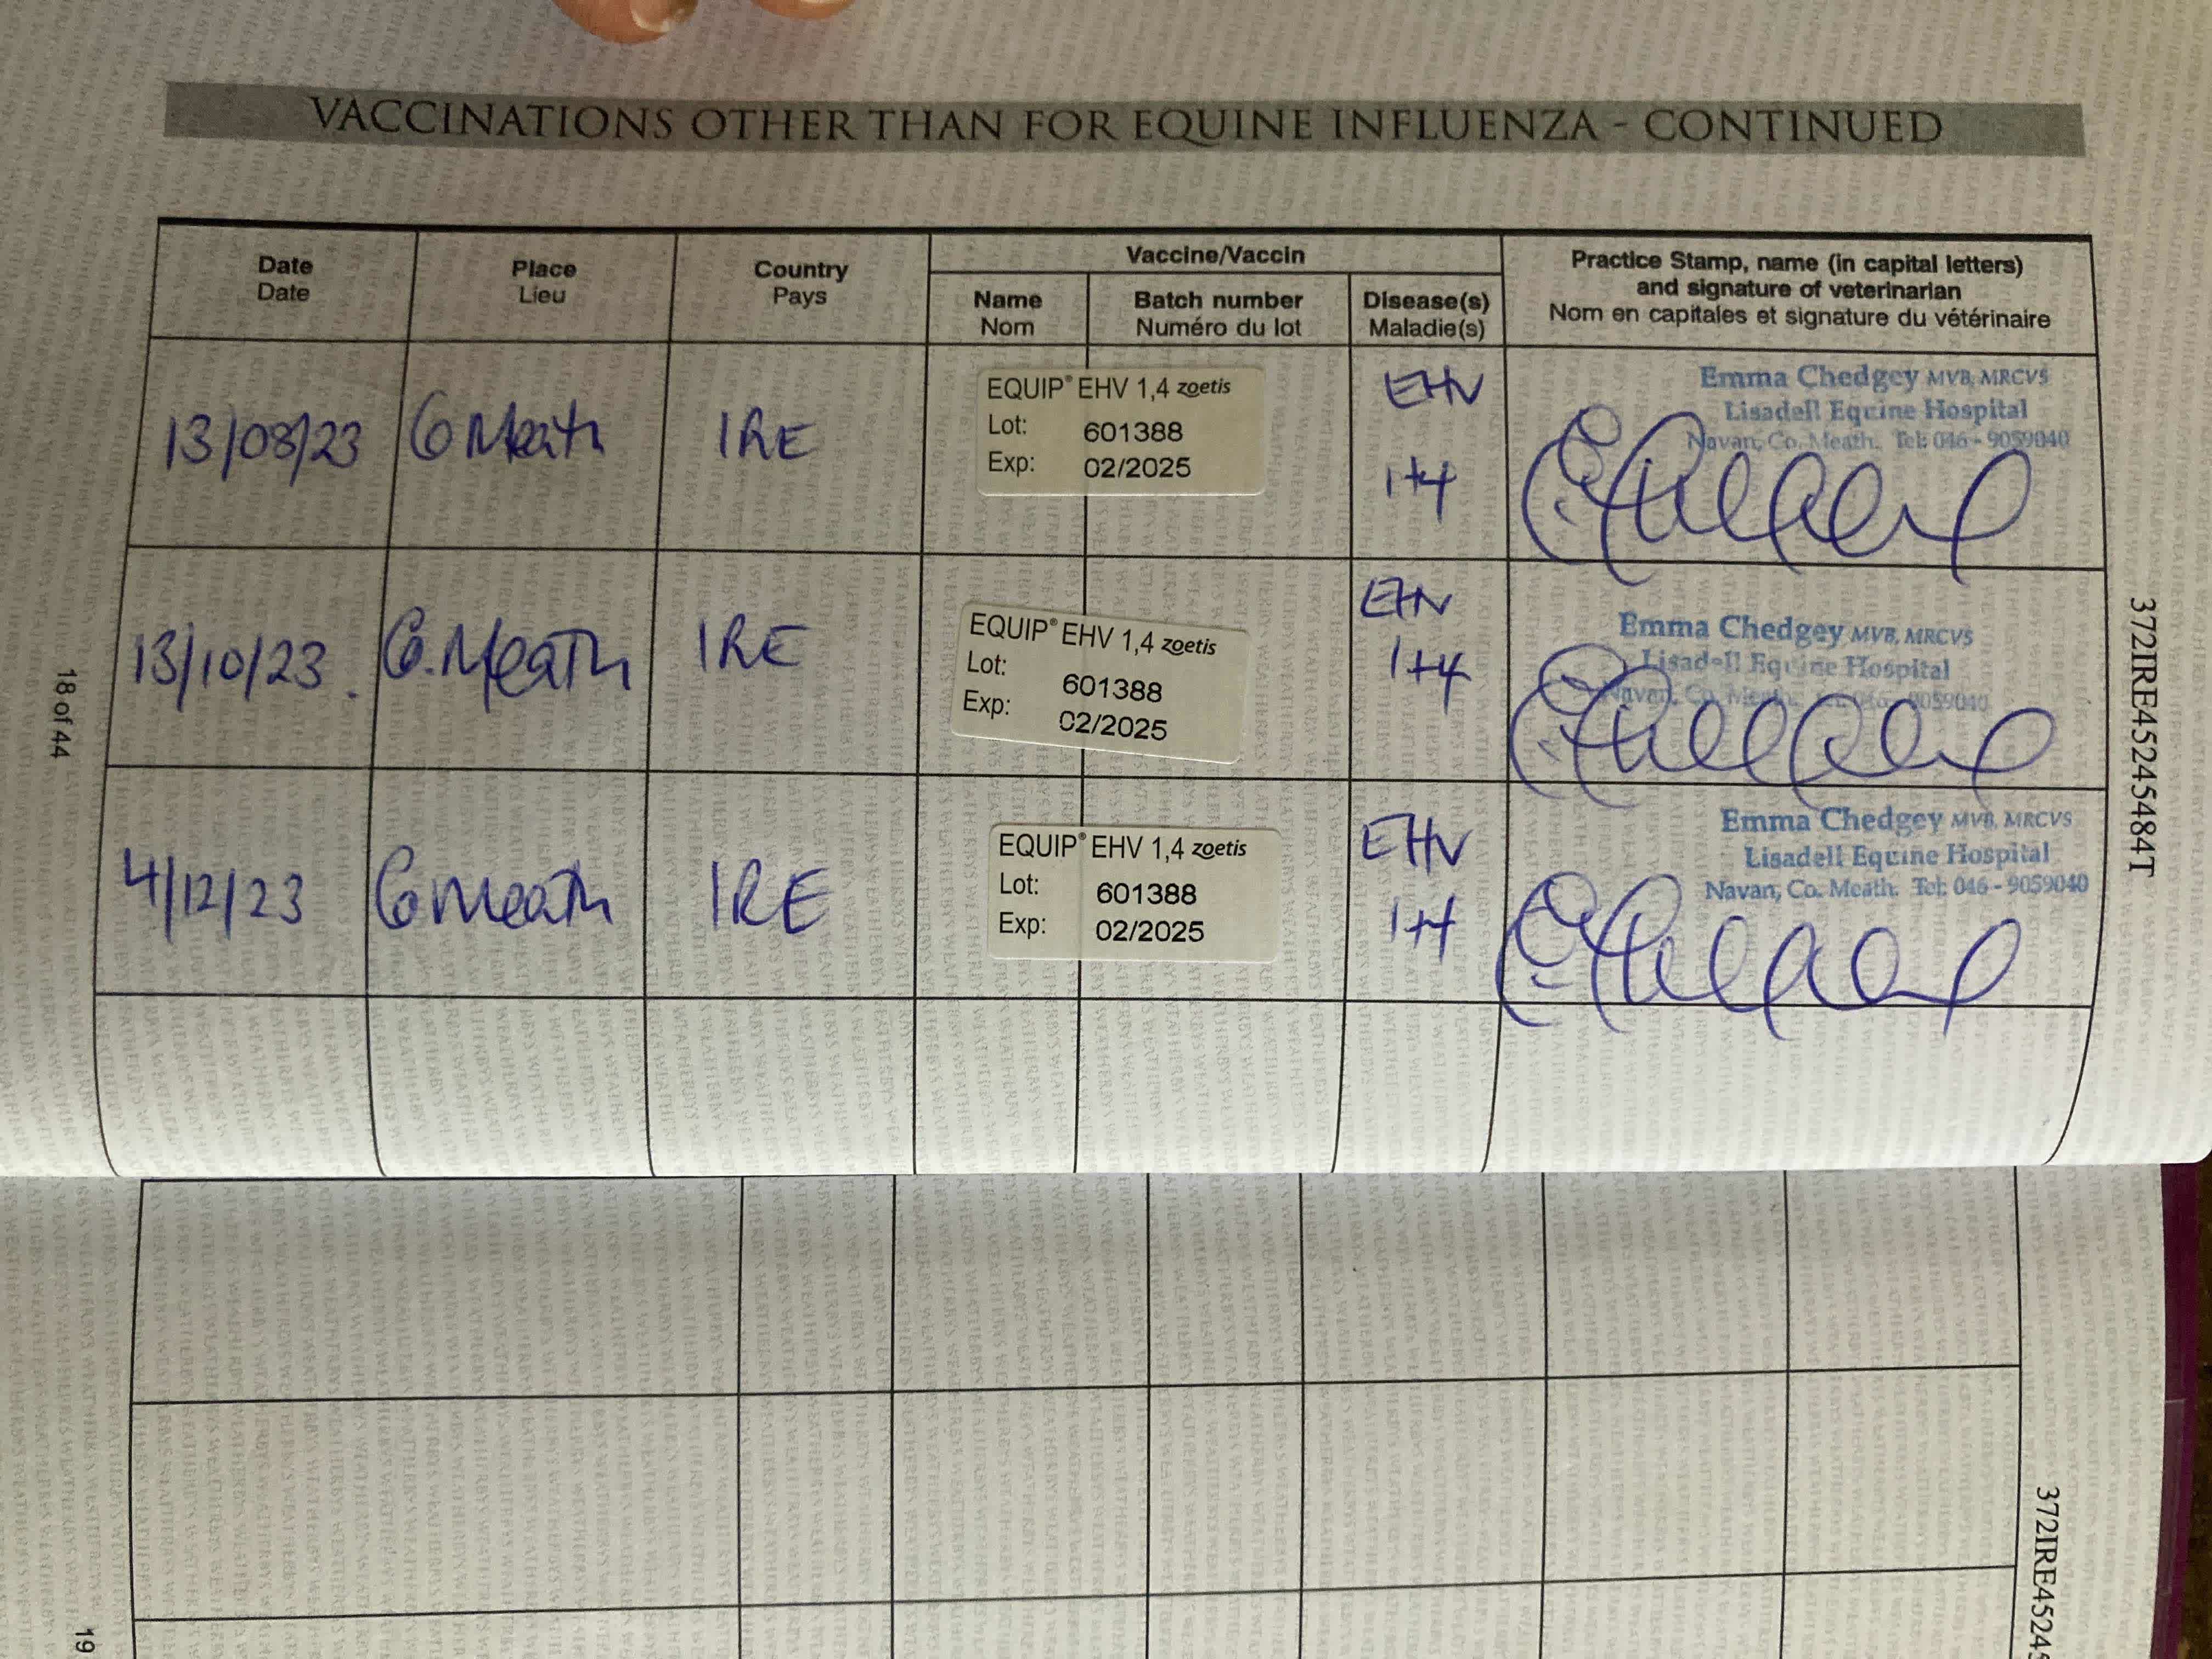 VACCINATIONS OTHER THAN FOR EQUINE INFLUENZA - CONTINUED
Date
Date
Place
Lieu
Country
Pays
Vaccine/Vaccin
Name
Nom
Batch number
Numéro du lot
Disease(s)
Maladie(s)
Practice Stamp, name (in capital letters)
and signature of veterinarian
Nom en capitales et signature du vétérinaire
13/08/23
Co Meath
IRE
EQUIP® EHV 1,4 zoetis
Lot: 601388
Exp: 02/2025
EHV
1+4
Emma Chedgey MVB, MRCVS
Lisadell Equine Hospital
Navan, Co. Meath. Tel: 046 - 9059040
13/10/23.
Co. Meath
IRE
EQUIP® EHV 1,4 zoetis
Lot: 601388
Exp: 02/2025
EHV
1+4
Emma Chedgey MVB, MRCVS
Lisadell Equine Hospital
Navan, Co. Meath. 046 - 9059040
4/12/23
Co Meath
IRE
EQUIP® EHV 1,4 zoetis
Lot: 601388
Exp: 02/2025
EHV
1+4
Emma Chedgey MVB, MRCVS
Lisadell Equine Hospital
Navan, Co. Meath. Tel: 046 - 9059040
18 of 44
372IRE45245484T
19
372IRE45245